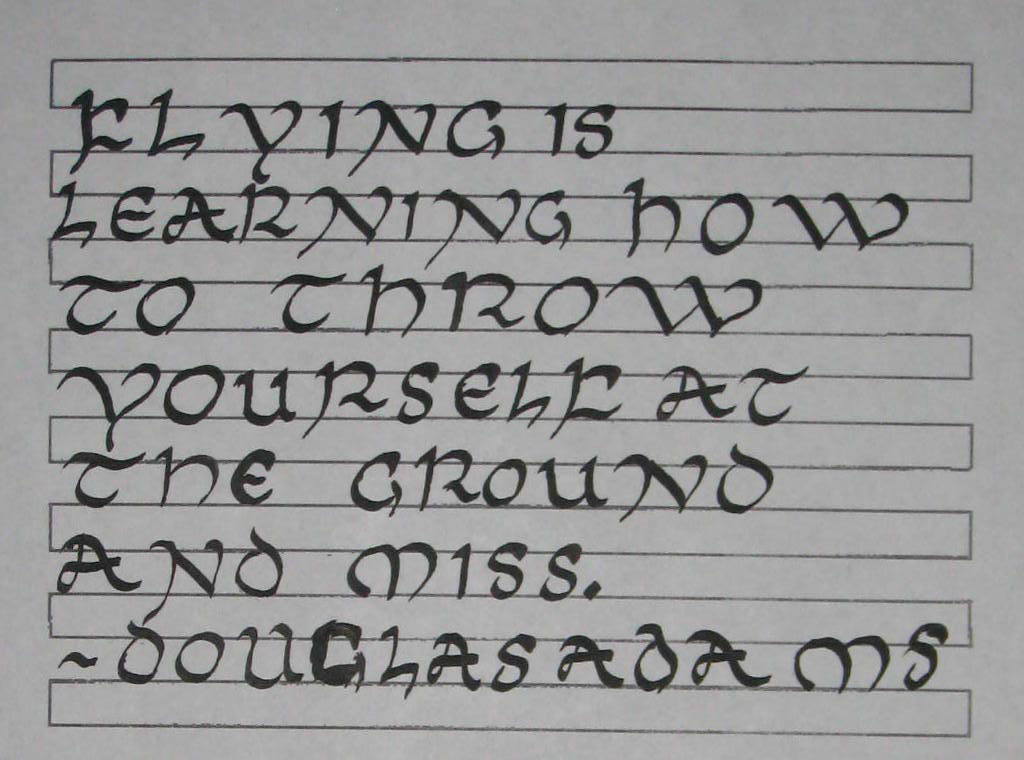 FLYING IS
LEARNING HOW
TO THROW
YOURSELF AT
THE GROUND
AND MISS.
~DOUGLAS ADAMS